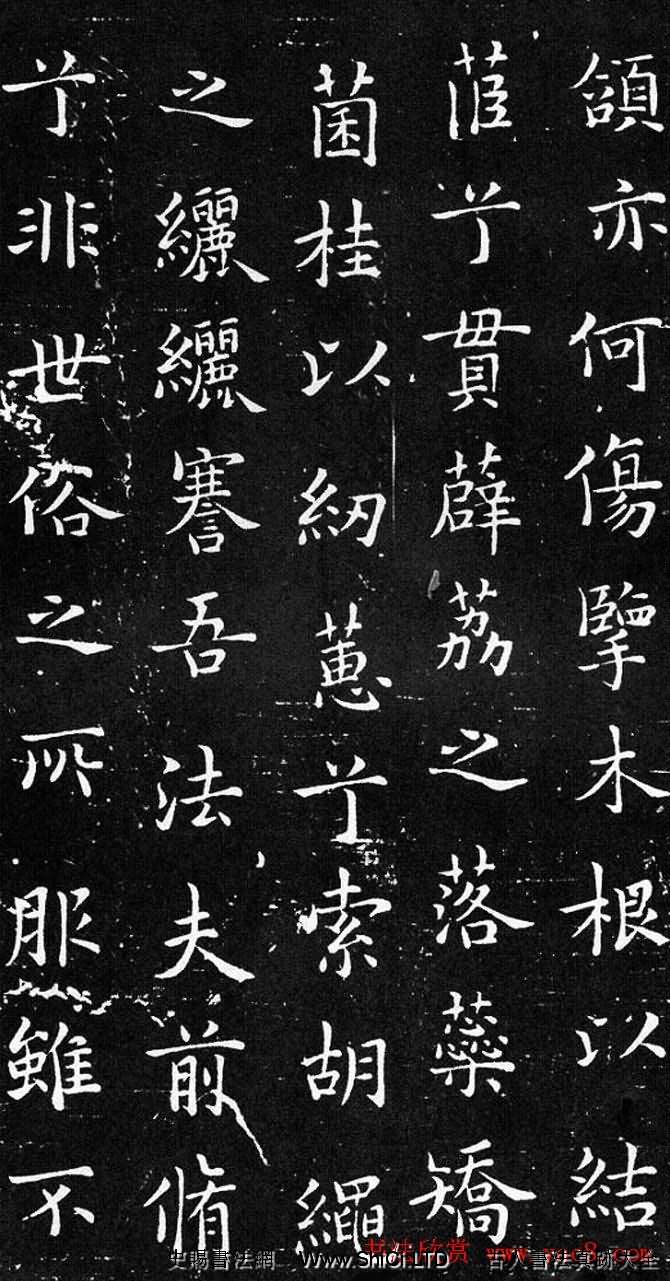 頷亦何傷擥木根以結
茝兮貫薜荔之落蘂矯
菌桂以紉蕙兮索胡繩
之纚纚謇吾法夫前脩
兮非世俗之所服雖不
书法欣赏 www.yac8.com
史賜書法網 www.ShiCi.LTD 古人書法真跡大全